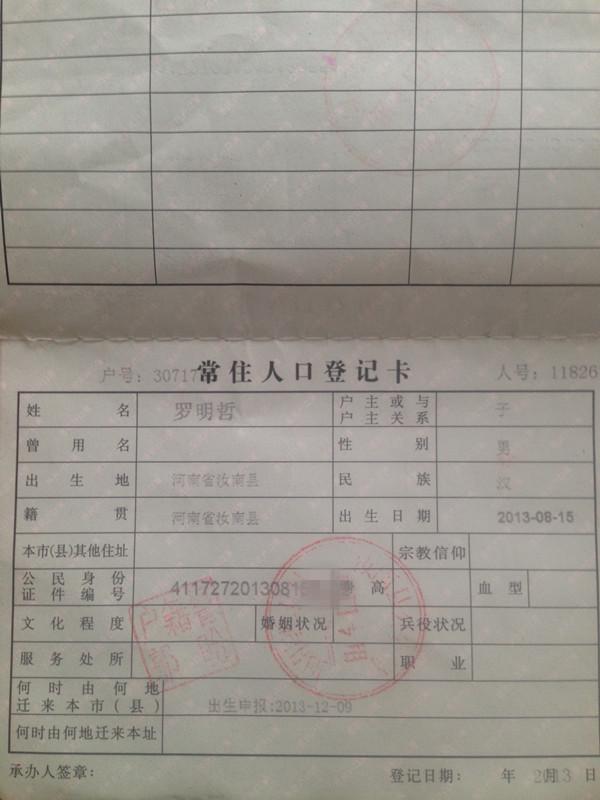 户号: 30717 常住人口登记卡 人号: 11826
姓名 罗明哲 户主或与户主关系 子
曾用名 性别 男
出生地 河南省汝南县 民族 汉
籍贯 河南省汝南县 出生日期 2013-08-15
本市(县)其他住址 宗教信仰
公民身份证件编号 4117272013081 身高 血型
文化程度 婚姻状况 兵役状况
服务处所 职业
何时由何地迁来本市(县) 出生申报:2013-12-09
何时由何地迁来本址
承办人签章: 登记日期: 年 月 日